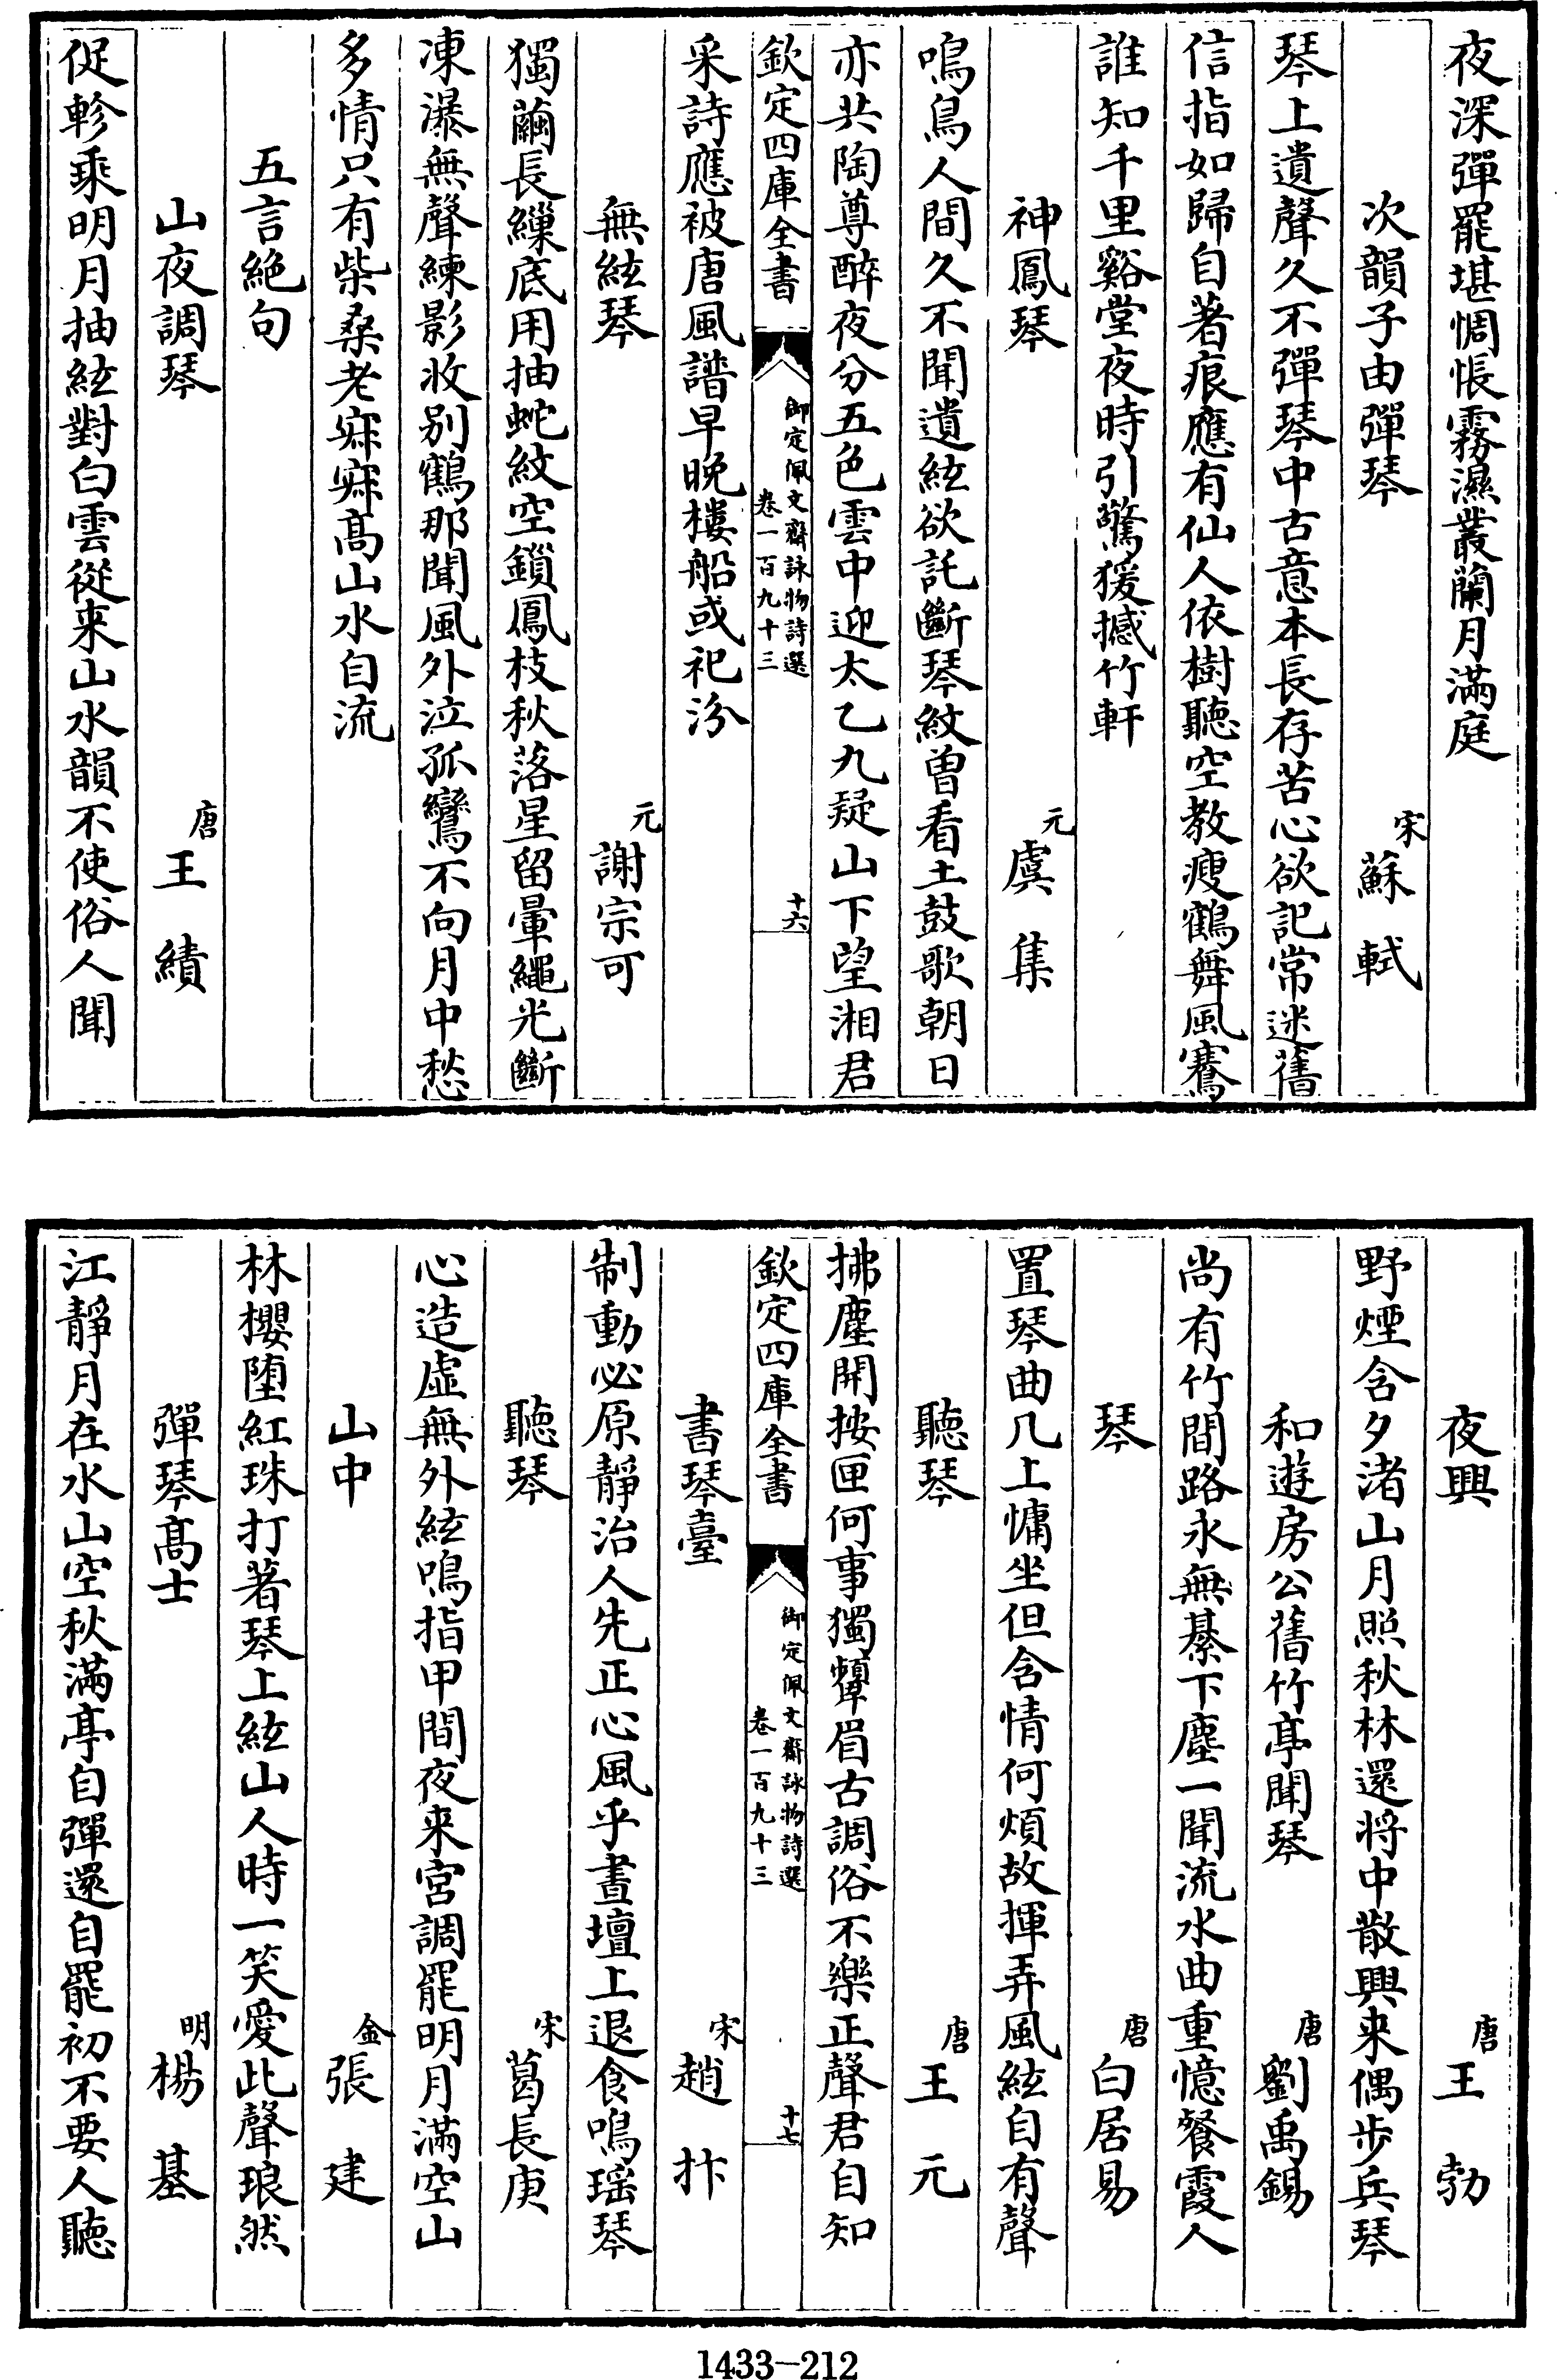 夜深彈罷堪惆悵霧濕叢蘭月滿庭
次韻子由彈琴 宋 蘇軾
琴上遺聲久不彈琴中古意本長存苦心欲記常迷舊
信指如歸自著痕應有仙人依樹聽空教瘦鶴舞風騫
誰知千里谿堂夜時引驚猨撼竹軒
神鳳琴 元 虞集
鳴鳥人間久不聞遺絃欲託斷琴紋曾看土鼓歌朝日
亦共陶尊醉夜分五色雲中迎太乙九疑山下望湘君
欽定四庫全書 御定佩文齋詠物詩選 卷一百九十三 十六
采詩應被唐風譜早晚樓船或祀汾
無絃琴 元 謝宗可
獨繭長繅底用抽蛇紋空鎖鳳枝秋落星留暈繩光斷
凍瀑無聲練影收别鶴那聞風外泣孤鸞不向月中愁
多情只有柴桑老寂寂髙山水自流
五言絶句
山夜調琴 唐 王績
促軫乘明月抽絃對白雲從来山水韻不使俗人聞
夜興 唐 王勃
野煙含夕渚山月照秋林還將中散興来偶步兵琴
和遊房公舊竹亭聞琴 唐 劉禹錫
尚有竹間路永無綦下塵一聞流水曲重憶餐霞人
琴 唐 白居易
置琴曲几上慵坐但含情何煩故揮弄風絃自有聲
聽琴 唐 王元
拂塵開按匣何事獨顰眉古調俗不樂正聲君自知
欽定四庫全書 御定佩文齋詠物詩選 卷一百九十三 十七
書琴臺 宋 趙抃
制動必原靜治人先正心風乎晝壇上退食鳴瑶琴
聽琴 宋 葛長庚
心造虛無外絃鳴指甲間夜来宮調罷明月滿空山
山中 金 張建
林櫻堕紅珠打著琴上絃山人時一笑愛此聲琅然
彈琴髙士 明 楊基
江靜月在水山空秋滿亭自彈還自罷初不要人聽
1433-212